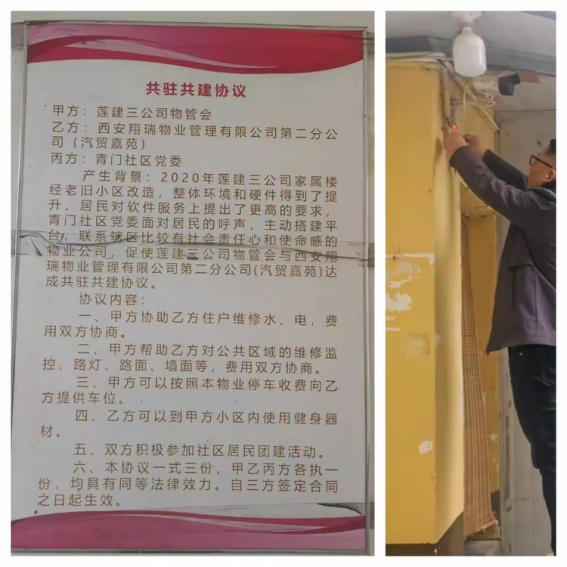 共驻共建协议
甲方：莲建三公司物管会
乙方：西安翔瑞物业管理有限公司第二分公
司（汽贸嘉苑）
丙方：青门社区党委
产生背景：2020年莲建三公司家属楼
经老旧小区改造，整体环境和硬件得到了提
升，居民对软件服务上提出了更高的要求，
青门社区党委面对居民的呼声，主动搭建平
台，联系辖区比较有社会责任心和使命感的
物业公司，促使莲建三公司物管会与西安翔
瑞物业管理有限公司第二分公司(汽贸嘉苑)达
成共驻共建协议。
协议内容：
一、甲方协助乙方住户维修水、电，费
用双方协商。
二、甲方帮助乙方对公共区域的维修监
控、路灯、路面、墙面等，费用双方协商。
三、甲方可以按照本物业停车收费向乙
方提供车位。
四、乙方可以到甲方小区内使用健身器
材。
五、双方积极参加社区居民团建活动。
六、本协议一式三份，甲乙丙方各执一
份，均具有同等法律效力。自三方签定合同
之日起生效。